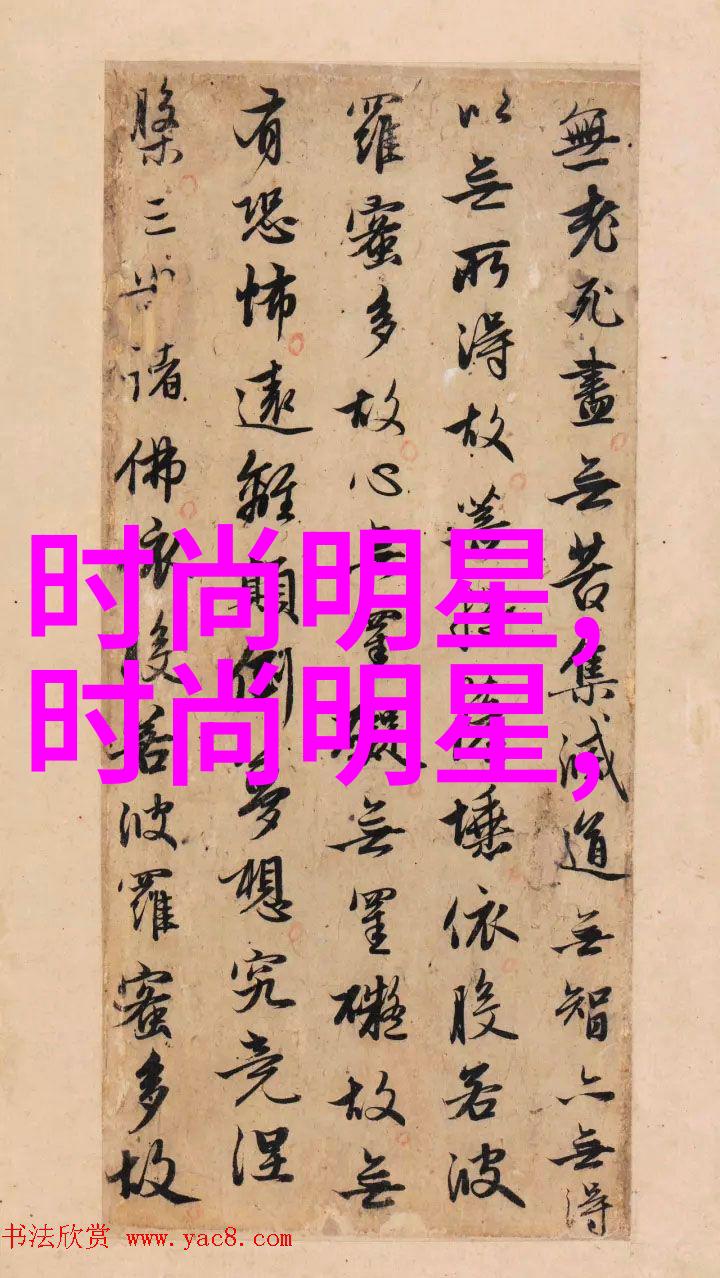 無老死盡無苦集滅道無智亦無得
以無所得故菩提薩埵依般若波
羅蜜多故心無罣礙無罣礙故無
有恐怖遠離顛倒夢想究竟涅
槃三世諸佛依般若波羅蜜多故
时尚明星,
时尚明星,
书法欣赏 www.yac8.com